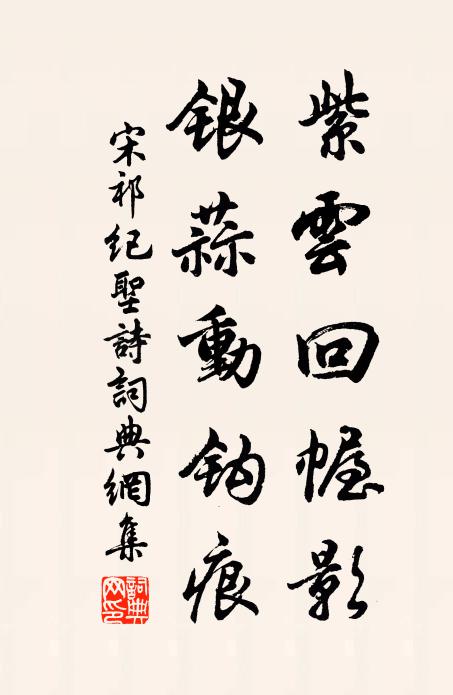 紫雲回幄影
銀蒜動鈎痕
宋祁紀聖詩詞典網集
詞典網印